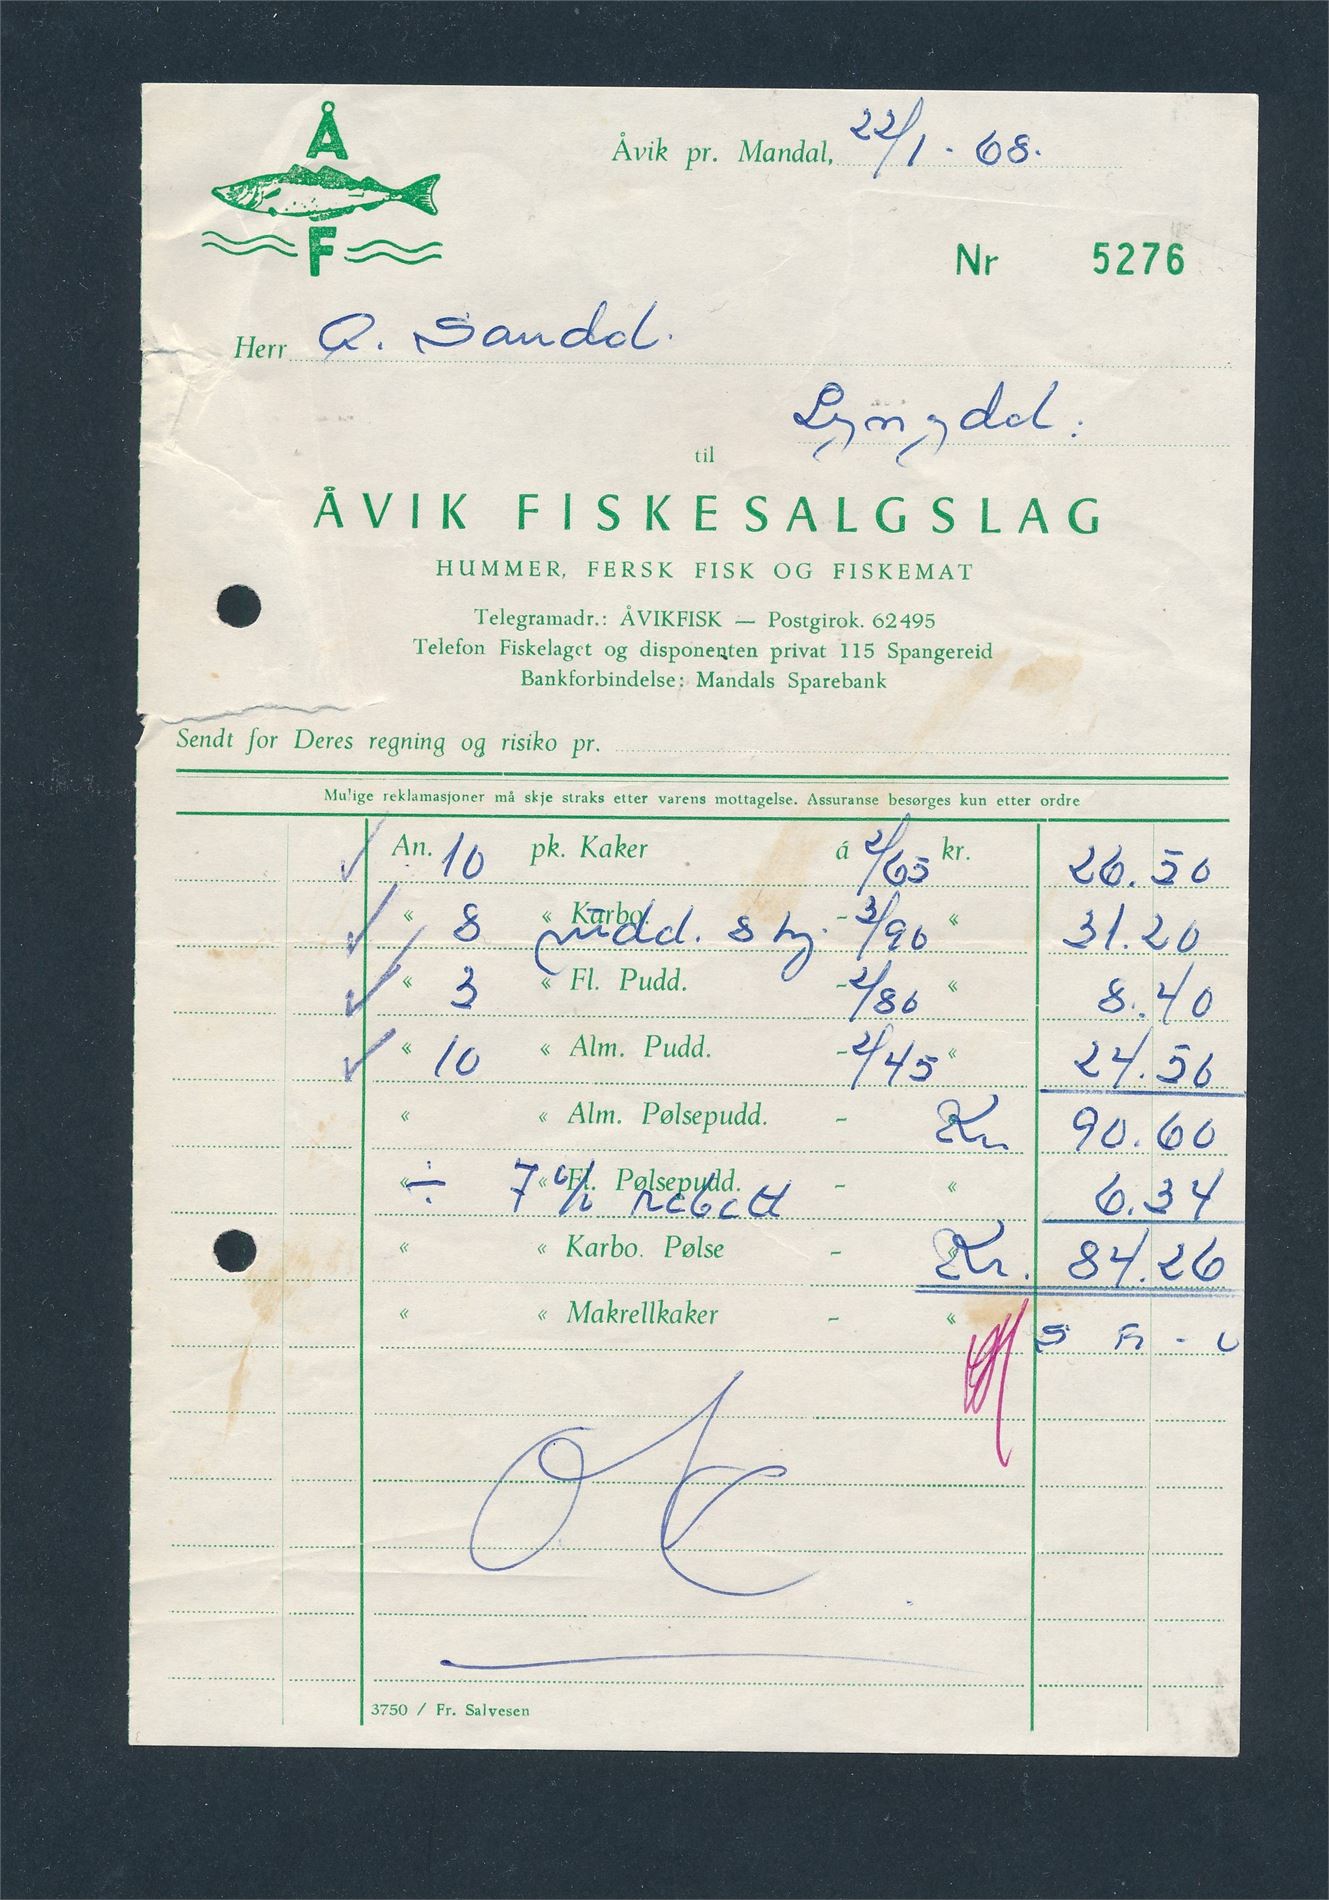 Å
F
Åvik pr. Mandal, 22/1 - 68.
Nr 5276
Herr
til
ÅVIK FISKESALGSLAG
HUMMER, FERSK FISK OG FISKEMAT
Telegramadr.: ÅVIKFISK — Postgirok. 62495
Telefon Fiskelaget og disponenten privat 115 Spangereid
Bankforbindelse: Mandals Sparebank
Sendt for Deres regning og risiko pr.
Mulige reklamasjoner må skje straks etter varens mottagelse. Assuranse besørges kun etter ordre
An. 10 pk. Kaker á 2/65 kr. 26.50
« 8 « Karbo. pudd. - 3/90 « 31.20
« 3 « Fl. Pudd. - 2/80 « 8.40
« 10 « Alm. Pudd. - 2/45 « 24.50
« « Alm. Pølsepudd. - Kr. 90.60
« « Fl. Pølsepudd. - «
÷ 7 % rabatt 6.34
« « Karbo. Pølse - Kr. 84.26
« « Makrellkaker - «
3750 / Fr. Salvesen